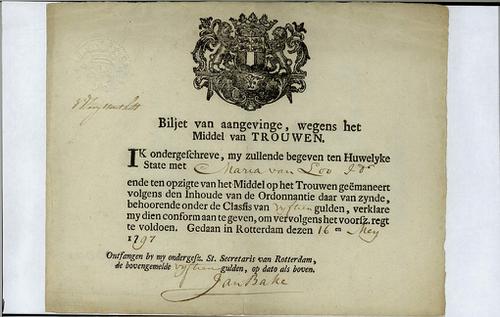 Biljet van aangevinge, wegens het
Middel van TROUWEN.
IK ondergeschreve, my zullende begeven ten Huwelyke
State met Maria van Loo J:D:
ende ten opzigte van het Middel op het Trouwen geëmaneert
volgens den Inhoude van de Ordonnantie daar van zynde,
behoorende onder de Classis van vyftien gulden, verklare
my dien conform aan te geven, om vervolgens het voorsz. regt
te voldoen. Gedaan in Rotterdam dezen 16 en Mey
1797
Ontfangen by my ondergesz. St. Secretaris van Rotterdam,
de bovengemelde vyftien gulden, op dato als boven.
Jan Bake